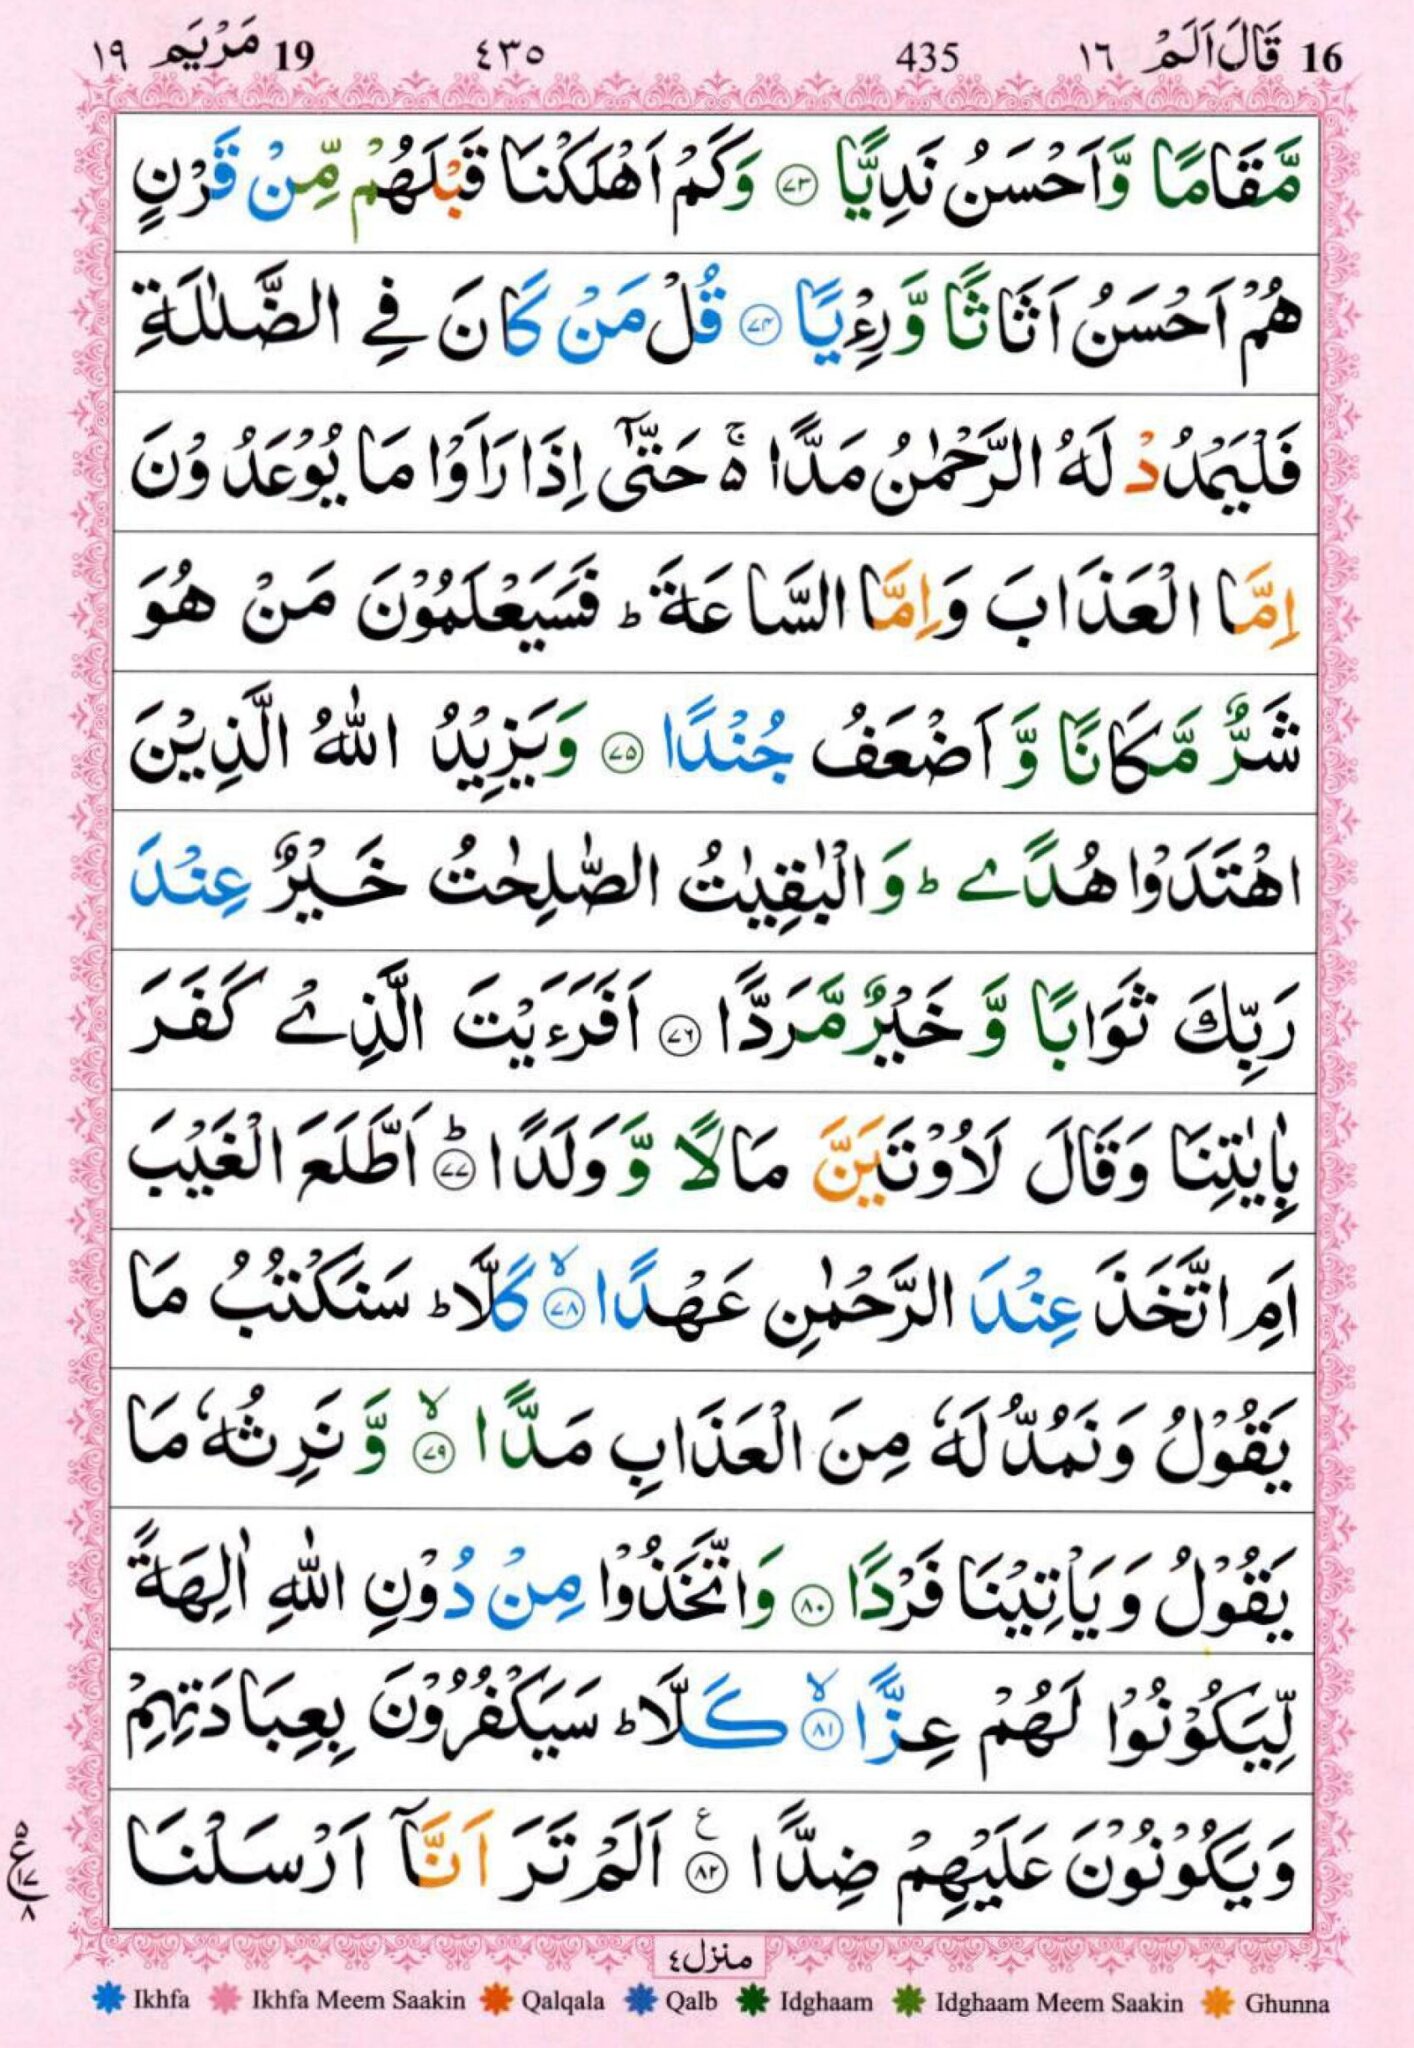 16 قَالَ اَلَمْ ١٦ 435 ٤٣٥ 19 مَرْيَم ١٩
مَّقَامًا وَّاَحْسَنُ نَدِيًّا ﴿٧٣﴾ وَكَمْ اَهْلَكْنَا قَبْلَهُمْ مِّنْ قَرْنٍ
هُمْ اَحْسَنُ اَثَاثًا وَّرِءْيًا ﴿٧٤﴾ قُلْ مَنْ كَانَ فِي الضَّلٰلَةِ
فَلْيَمْدُدْ لَهُ الرَّحْمٰنُ مَدًّا ۚ۬ حَتّٰٓى اِذَا رَاَوْا مَا يُوْعَدُوْنَ
اِمَّا الْعَذَابَ وَاِمَّا السَّاعَةَ ؕ فَسَيَعْلَمُوْنَ مَنْ هُوَ
شَرٌّ مَّكَانًا وَّاَضْعَفُ جُنْدًا ﴿٧٥﴾ وَيَزِيْدُ اللّٰهُ الَّذِيْنَ
اهْتَدَوْا هُدًے ؕ وَالْبٰقِيٰتُ الصّٰلِحٰتُ خَيْرٌ عِنْدَ
رَبِّكَ ثَوَابًا وَّخَيْرٌ مَّرَدًّا ﴿٧٦﴾ اَفَرَءَيْتَ الَّذِےْ كَفَرَ
بِاٰيٰتِنَا وَقَالَ لَاُوْتَيَنَّ مَالًا وَّوَلَدًا ؕ﴿٧٧﴾ اَطَّلَعَ الْغَيْبَ
اَمِ اتَّخَذَ عِنْدَ الرَّحْمٰنِ عَهْدًا ۙ﴿٧٨﴾ كَلَّا ؕ سَنَكْتُبُ مَا
يَقُوْلُ وَنَمُدُّ لَهٗ مِنَ الْعَذَابِ مَدًّا ۙ﴿٧٩﴾ وَّنَرِثُهٗ مَا
يَقُوْلُ وَيَاْتِيْنَا فَرْدًا ﴿٨٠﴾ وَاتَّخَذُوْا مِنْ دُوْنِ اللّٰهِ اٰلِهَةً
لِّيَكُوْنُوْا لَهُمْ عِزًّا ۙ﴿٨١﴾ كَلَّا ؕ سَيَكْفُرُوْنَ بِعِبَادَتِهِمْ
وَيَكُوْنُوْنَ عَلَيْهِمْ ضِدًّا ع﴿٨٢﴾ اَلَمْ تَرَ اَنَّآ اَرْسَلْنَا
٥ ع ١٧ ٨
منزل ٤
Ikhfa Ikhfa Meem Saakin Qalqala Qalb Idghaam Idghaam Meem Saakin Ghunna